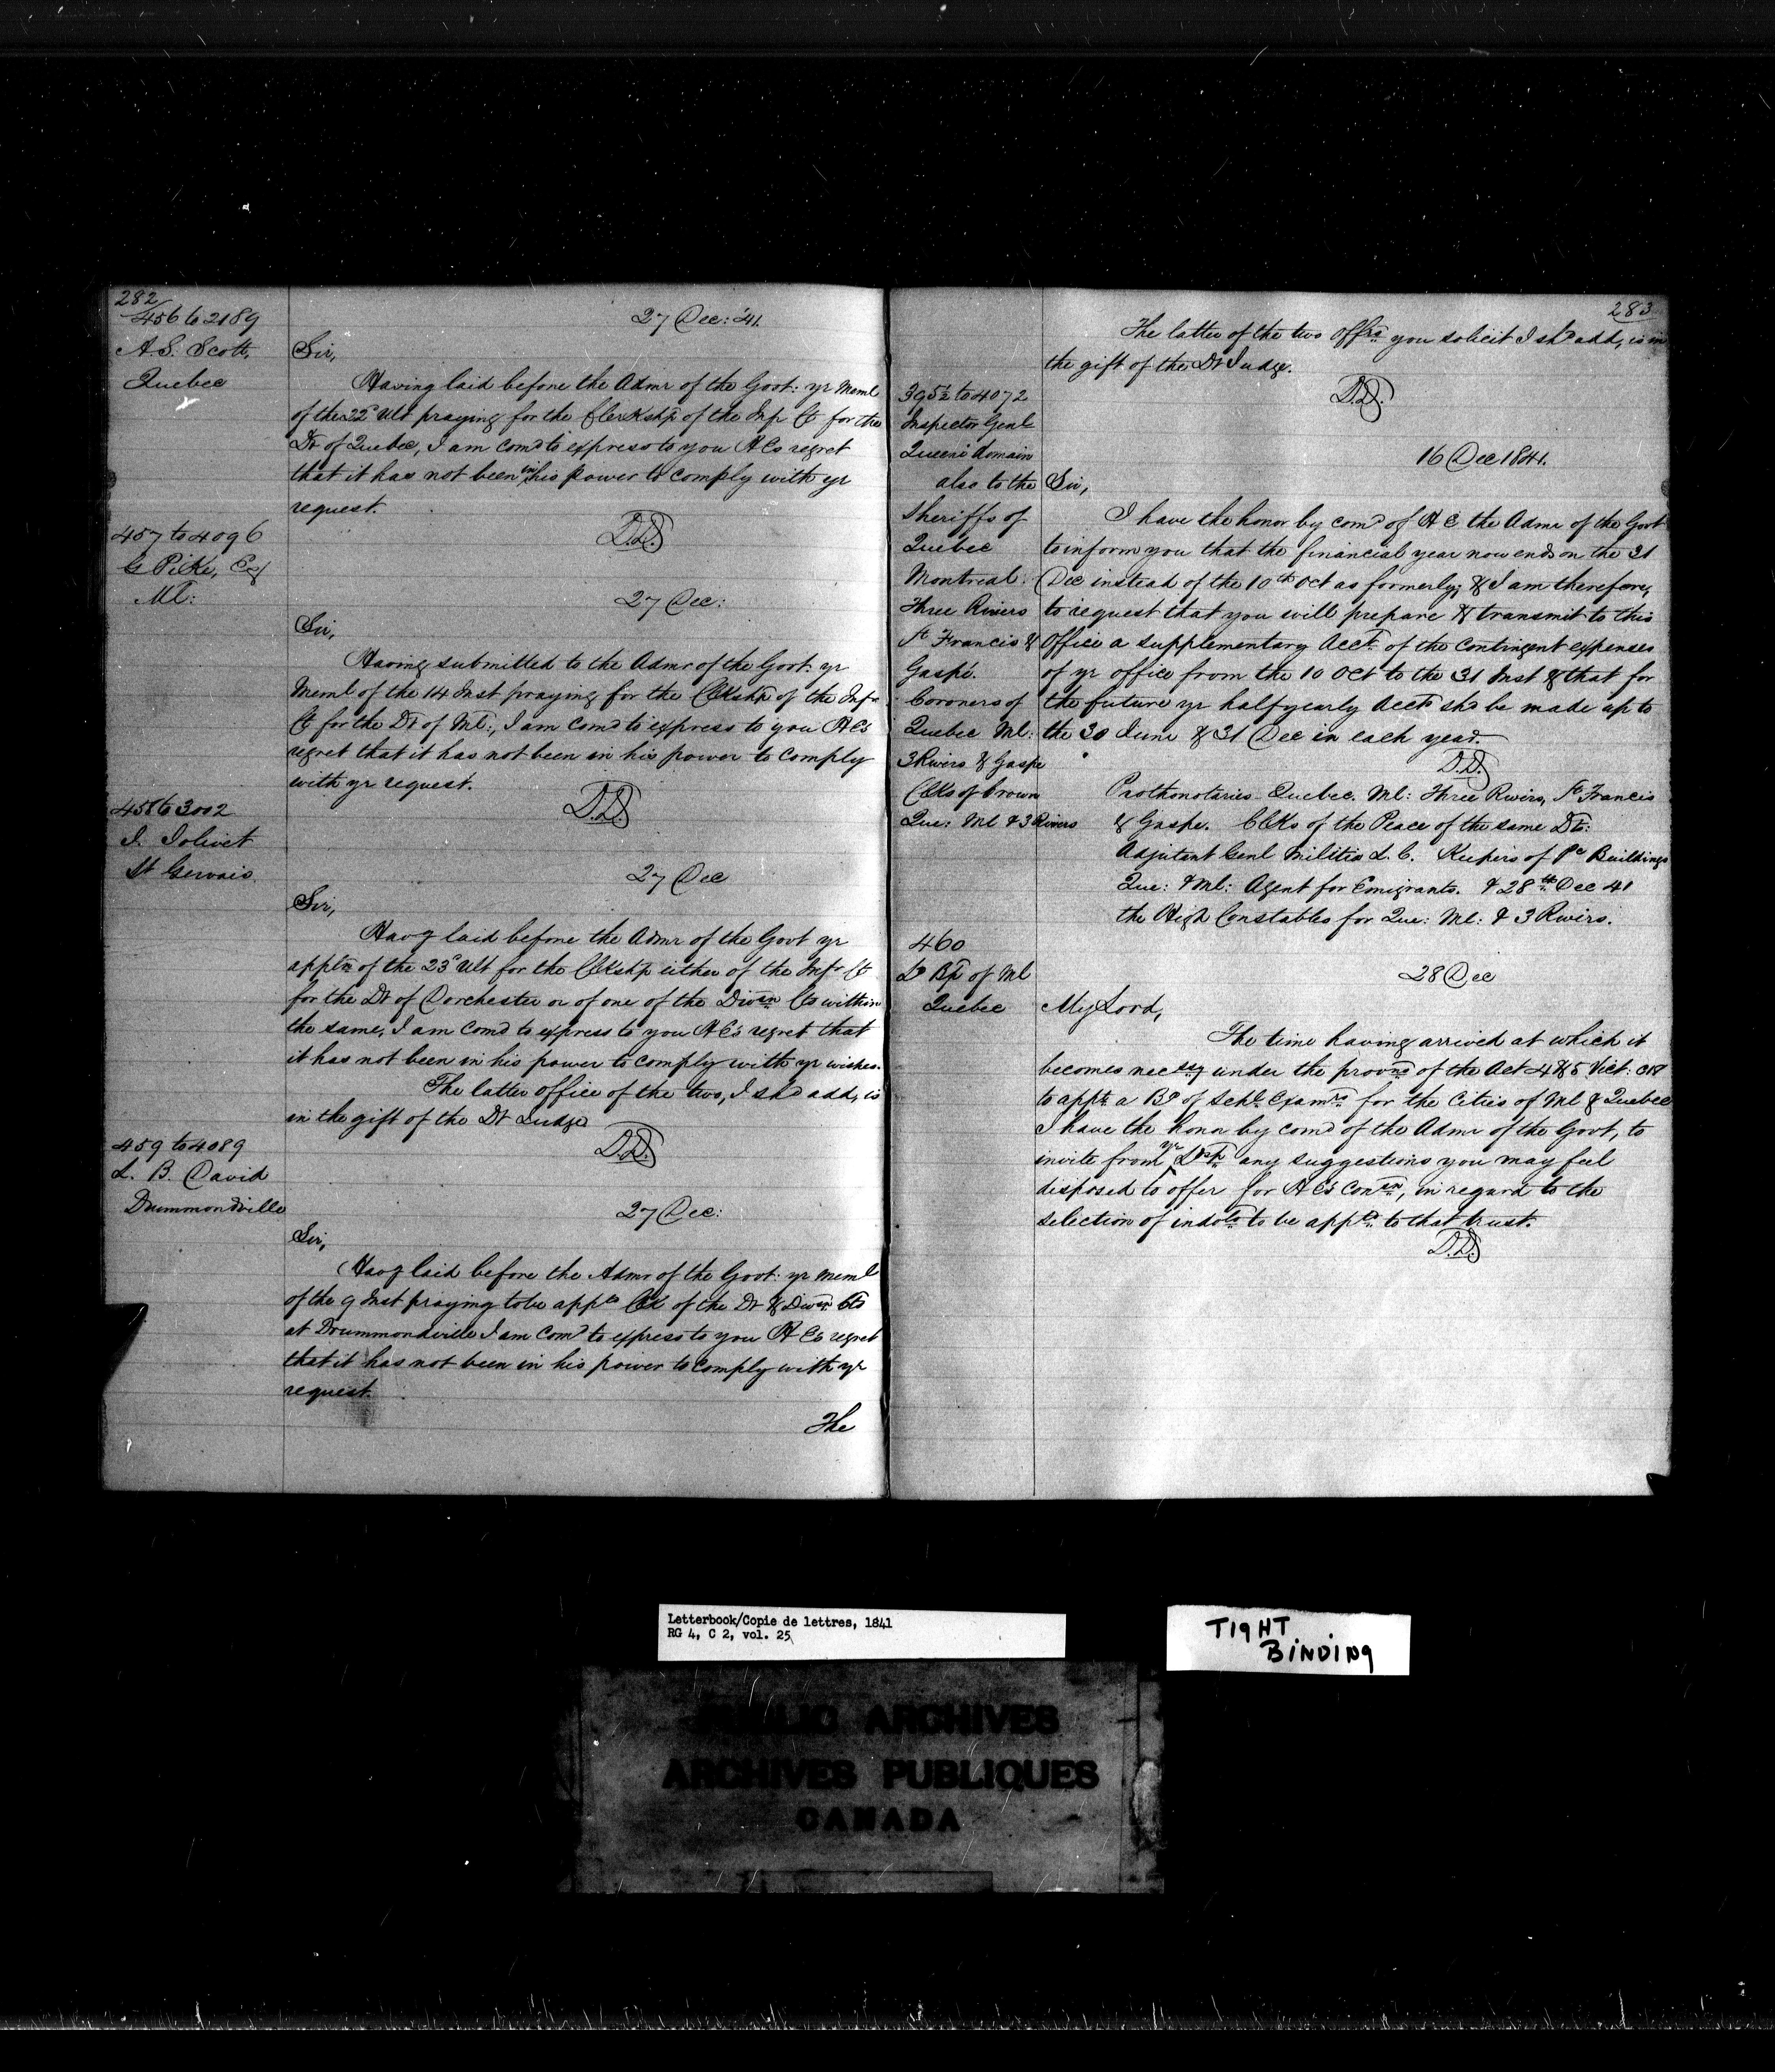 282
456 to 2189
A.S. Scott,
Quebec
27 Dec: '41.
Sir,
Having laid before the Admr of the Govt: yr Meml
of the 22d Ult praying for the Clerkshp of the Infr Ct for the
Dt of Quebec, I am comd to express to you H Es regret
that it has not been in his power to comply with yr
request.
D.D.
457 to 4096
G Pilke, Esq
Ml:
27 Dec:
Sir,
Having submitted to the Admr of the Govt: yr
Meml of the 14 Inst praying for the Clkshp of the Infr
Ct for the Dt of Ml:, I am comd to express to you H Es
regret that it has not been in his power to comply
with yr request.
D.D.
458 to 3002
J. Jolivet
St Gervais
27 Dec
Sir,
Havg laid before the Admr of the Govt yr
appln of the 23d Ult for the Clkshp either of the Infr Ct
for the Dt of Dorchester or of one of the Divsn Cts within
the same, I am comd to express to you H E's regret that
it has not been in his power to comply with yr wishes.
The latter office of the two, I shd add, is
in the gift of the Dt Judge
D.D.
459 to 4089
L. B. David
Drummondville
27 Dec:
Sir,
Havg laid before the Admr of the Govt: yr meml
of the 9 Inst praying to be apptd Clk of the Dt & Divsn Cts
at Drummondville I am comd to express to you H Es regret
that it has not been in his power to comply with yr
request.
The
283
The latter of the two Offes you solicit I shd add, is in
the gift of the Dt Judge.
D.D.
395½ to 4072
Inspector Genl
Queens domain
also to the
Sheriffs of
Quebec
Montreal
Three Rivers
St Francis &
Gaspé.
Coroners of
Quebec Ml:
3 Rivers & Gaspe
Clks of Crown
Que: Ml & 3 Rivers
16 Dec 1841.
Sir,
I have the honor by comd of H E the Admr of the Govt
to inform you that the financial year now ends on the 31
Dec instead of the 10th Oct as formerly; & I am therefore,
to request that you will prepare & transmit to this
Office a supplementary Acct of the Contingent expenses
of yr office from the 10 Oct to the 31 Inst & that for
the future yr halfyearly Accts shd be made up to
the 30 June & 31 Dec in each year.
D.D.
Prothonotaries Quebec. Ml: Three Rivers, St Francis
& Gaspe. Clks of the Peace of the same Dts:
Adjutant Genl Militia L. C. Keepers of Pc Buildings
Que: & Ml: Agent for Emigrants. & 28th Dec 41
the High Constables for Que: Ml: & 3 Rivers.
460
Ld Bp of Ml
Quebec
28 Dec
My Lord,
The time having arrived at which it
becomes necesy under the provns of the Act 4 & 5 Vict: c18
to appt a Bd of Schl Examrs for the Cities of Ml & Quebec
I have the honor by comd of the Admr of the Govt, to
invite from yr Ldshp any suggestions you may feel
disposed to offer for H E's Conson, in regard to the
selection of indvls to be apptd to that trust.
D.D.
Letterbook/Copie de lettres, 1841
RG 4, C 2, vol. 25
TIGHT
BINDING
PUBLIC ARCHIVES
ARCHIVES PUBLIQUES
CANADA